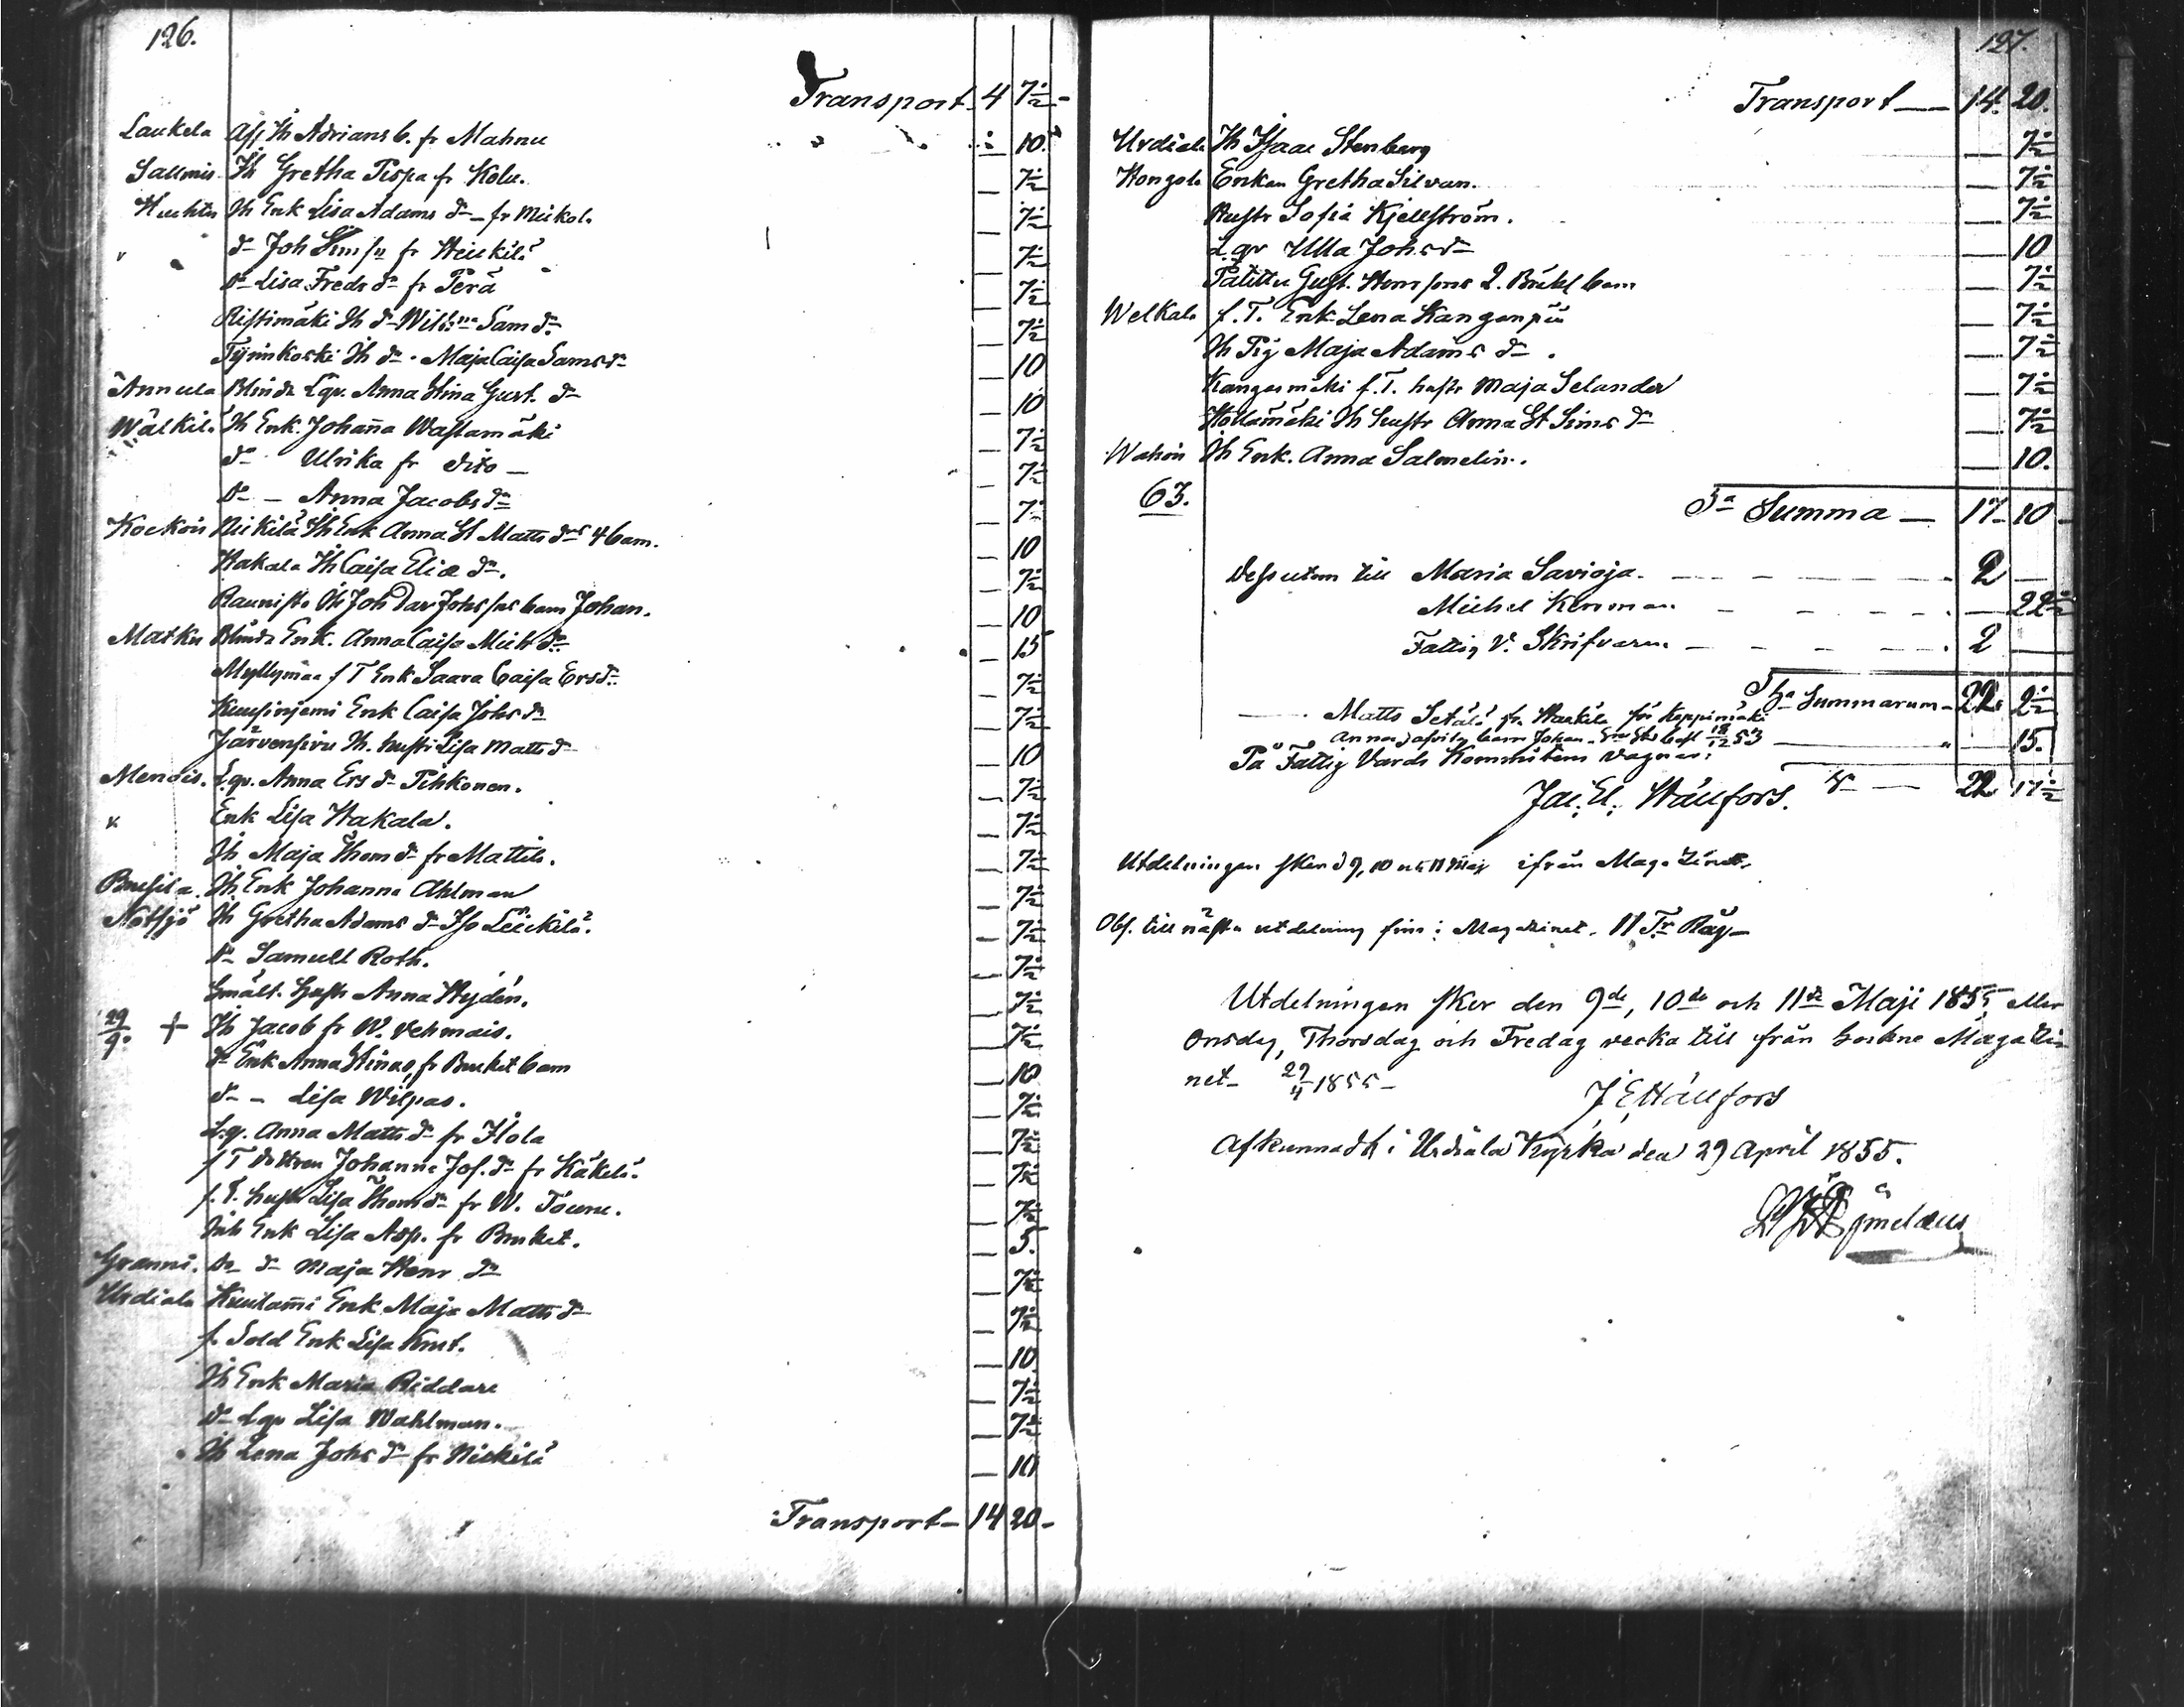 126.
Transport 4 7½ -
Laukela Afs Ih Adrians b. fr Mahnu - 10.
Salmis Ih Gretha Pispa fr Kolu. - 7½
Huhtis Ih Enk Lisa Adams dr - fr Mickol. - 7½
" do Joh Sim fr Heickilä - 7½
do Lisa Freds dr fr Perä - 7½
Ristimäki Ih do Wilhna Sam dr - 7½
Tyrinkoski Ih do. Maja Caisa Sams dr - 10
Annula Blinda Lgv. Anna Stina Gust. dr - 10
Wälkil. Ih Enk. Johanna Wastamäki - 7½
do Ulrika fr dito - - 7½
do - Anna Jacobs dr - 7½
Kockois Nickilä Ih Enk Anna St Matts drs 4 bam. - 10
Hakala Ih Caisa Eliæ dr. - 7½
Raunisto Ih Joh Dav Johs sns barn Johan. - 10
Matku Blinda Enk. Anna Caisa Mich dr. - 15
Myllymaa f T Enk Saara Caisa Ers dr. - 7½
Kuusinjemi Enk Caisa Johs dr - 7½
Järvensivu Ih. hustr Lisa Matts dr - 10
Menois. Lgv. Anna Ers dr Pihkonen. - 7½
" Enk Lisa Hakala. - 7½
Ih Maja Thom dr fr Mattila. - 7½
Ih Enk Johanna Ahlman - 7½
Notsjö Ih Gretha Adams dr Iso Leickilä. - 7½
do Samuel Roth. - 7½
Smält. Hustr Anna Heydén. - 7½
29/9. + Ih Jacob fr W. Vehmais. - 7½
do Enk Anna Stinas, fr Bruket bam - 10
do - Lisa Wilpas. - 7½
Lg. Anna Matts dr fr Hola - 7½
f T dottren Johanna Jos. dr fr Käkelä. - 7½
f. T. hustr Lisa Thoms dr fr W. - 7½
Inh Enk Lisa Asp. fr Bruket. - 5.
Do do Maja Henr dr - 7½
Urdiala Kuutami Enk Maja Matts dr - 7½
f. Sold Enk Lisa Knut. - 10
Ih Enk Maria Riddare - 7½
do Lgv Lisa Wahlman. - 7½
Ih Lena Johs dr fr Nickilä - 10
Transport - 14 20 -
127.
Transport — 14. 20.
Urdiala Ih Isaac Stenberg — 7½
Hongola Enkan Gretha Silvan. — 7½
Hustr Sofia Kjellström. — 7½
Lgv Ulla Johs dr — 10
Gust. Henr sons 2. bam — 7½
Welkala f. T. Enk Lena Kangenpää — 7½
Ih Pig Maja Adams dr. — 7½
Kangasmäki f. T. hustr Maja Selander — 7½
Ih hustr Anna St Sims dr — 7½
Wahois Ih Enk. Anna Salmelin. — 10.
63.
Sa Summa — 17 - 10 -
Dessutom till Maria Savioja. — 2 —
Michel — 22½
Fattig V. Skrifvaren — 2 —
Sa Summarum - 22. 2½
— Matts Setälä fr Haukila för
15.
På Fattig Vards Komitéens vägnar:
Jac. El. Hällfors. — 22 17½
Utdelningen sker d 9, 10 och 11 Maj ifrån Magazinet.
Obs. till nästa utdelning fins i Magazinet. 11 Tr Råg —
Utdelningen sker den 9de, 10de och 11te Maji 1855, eller
Onsdag, Thorsdag och Fredag vecka till från Sockne Magazi
net - 29/4 1855 -
J E Hällfors
Afkunnadt i Urdiala Kyrka den 29 April 1855.